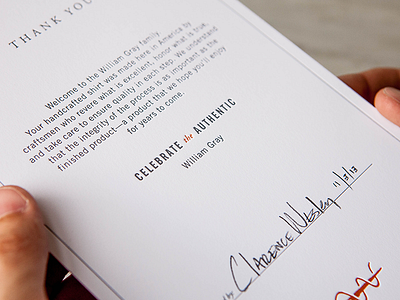 THANK YOU
Welcome to the William Gray family.
Your handcrafted shirt was made here in America by
craftsmen who revere what is excellent, honor what is true,
and take care to ensure quality in each step. We understand
that the integrity of the process is as important as the
finished product—a product that we hope you'll enjoy
for years to come.
CELEBRATE the AUTHENTIC
William Gray
Clarence Wesley 11/3/13